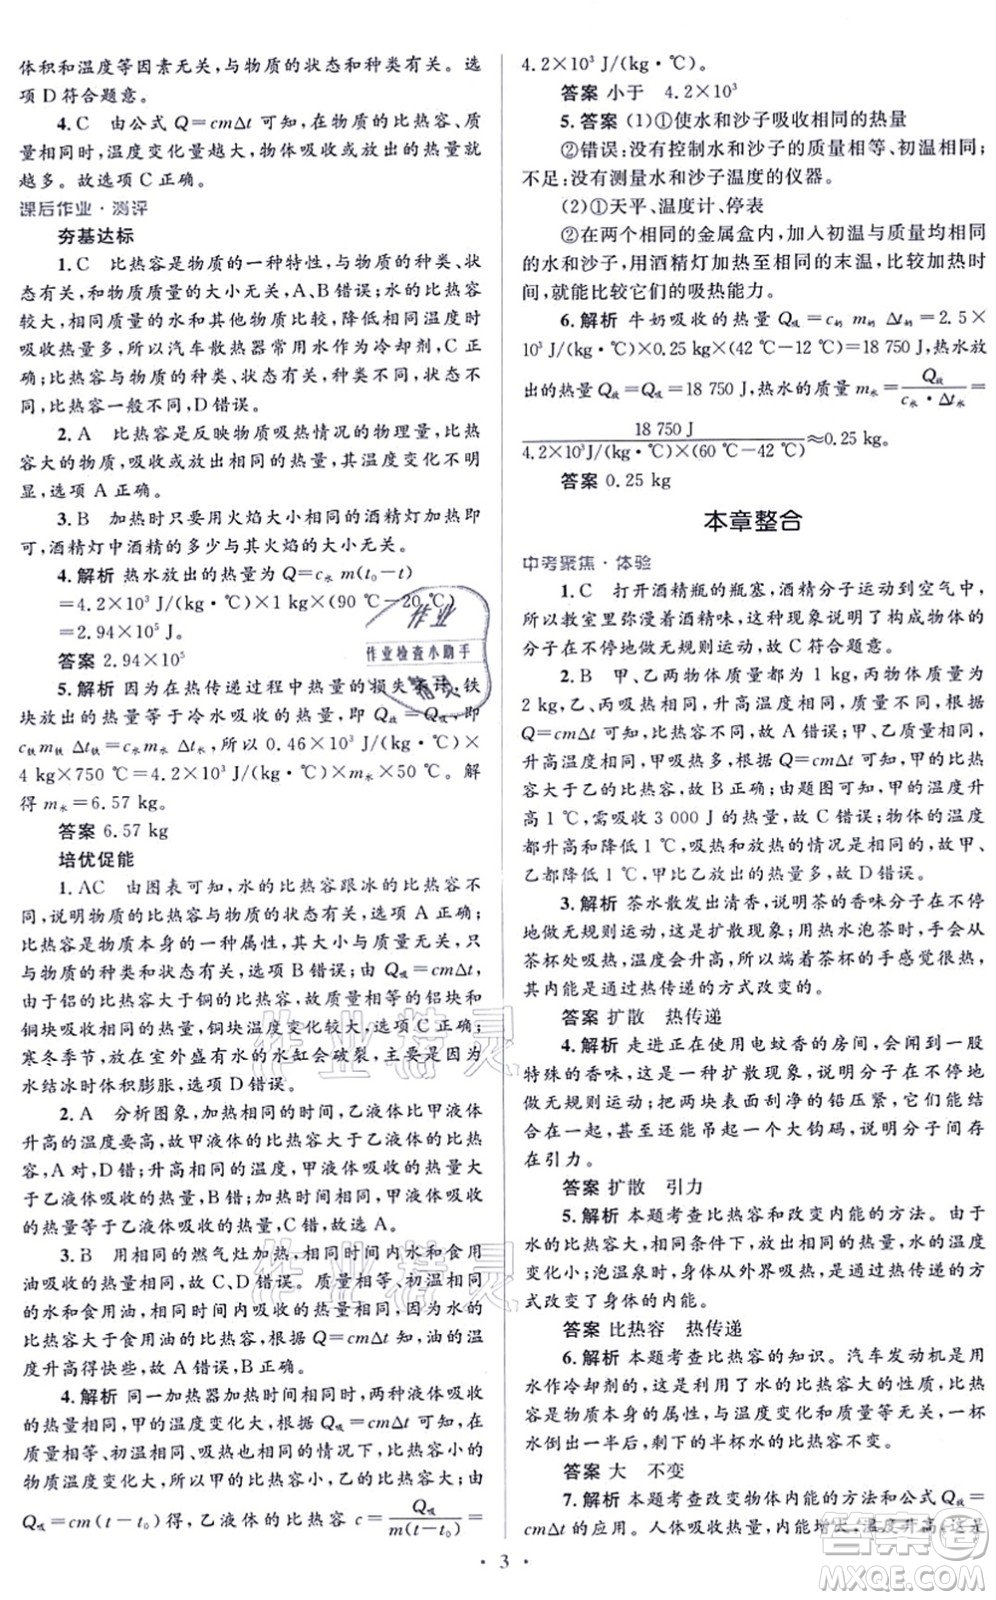 体积和温度等因素无关,与物质的状态和种类有关。选
项D符合题意。
4.C 由公式Q=cmΔt可知,在物质的比热容、质
量相同时,温度变化量越大,物体吸收或放出的热量就
越多。故选项C正确。
课后作业·测评
夯基达标
1.C 比热容是物质的一种特性,与物质的种类、状
态有关,和物质质量的大小无关,A、B错误;水的比热容
较大,相同质量的水和其他物质比较,降低相同温度时
吸收热量多,所以汽车散热器常用水作为冷却剂,C正
确;比热容与物质的种类、状态有关,种类不同,状态不
同,比热容一般不同,D错误。
2.A 比热容是反映物质吸热情况的物理量,比热
容大的物质,吸收或放出的热量多,其温度变化不明
显,选项A正确。
3.B 加热时只要用火焰大小相同的酒精灯加热即
可,酒精灯中酒精的多少与其火焰的大小无关。
4.解析 热水放出的热量Q=c水m(t₀-t)
=4.2×10³ J/(kg·℃)×1 kg×(90 ℃-20 ℃)
=2.94×10⁵ J。
答案 2.94×10⁵
5.解析 因为在热传递过程中热量的损失不计,铁
块放出的热量等于冷水吸收的热量,即Q放=Q吸,即
c铁m铁Δt铁=c水m水Δt水,所以0.46×10³ J/(kg·℃)×
4 kg×750 ℃=4.2×10³ J/(kg·℃)×m水×50 ℃。解
得m水=6.57 kg。
答案 6.57 kg
培优促能
1.AC 由图表可知,水的比热容跟冰的比热容不
同,说明物质的比热容与物质的状态有关,选项A正确;
比热容是物质本身的一种属性,其大小与质量无关,只
与物质的种类和状态有关,选项B错误;由Q吸=cmΔt,
由于铝的比热容大于铜的比热容,故质量相等的铝块和
铜块吸收相同的热量,铜块温度变化较大,选项C正确;
寒冬季节,放在室外盛有水的水缸会破裂,主要是因为
水结冰时体积膨胀,故选项D错误。
2.A 分析图象,加热相同的时间,乙液体比甲液体
升高的温度要高,故甲液体的比热容大于乙液体的比热
容,A对,D错;升高相同的温度,甲液体吸收的热量大
于乙液体吸收的热量,B错;加热相同时间,甲液体吸收
的热量等于乙液体吸收的热量,故C错。
3.B 用相同的燃气灶加热,相同时间内水和食用
油吸收的热量相同,故C、D错误。质量相等、初温相同
的水和食用油,相同时间内吸收的热量相同,因为水的
比热容大于食用油的比热容,根据Q=cmΔt知,油的温
度升高得快些,故A错误,B正确。
4.解析 同一加热器加热时间相同时,两种液体吸收
的热量相同,甲的温度变化大,根据Q吸=cmΔt可知,在
质量相等、初温相同、吸热也相同的情况下,比热容小的
物质温度变化大,所以甲的比热容小,乙的比热容大;由
Q吸=cm(t-t₀)得,乙液体的比热容c=Q吸/m(t-t₀)=
4.2×10³ J/(kg·℃)。
答案 小于 4.2×10³
5.答案 (1)①使水和沙子吸收相同的热量
②错误:没有控制水和沙子的质量相等、初温相同;
不足:没有测量水和沙子温度的仪器。
(2)①天平、温度计、停表
②在两个相同的金属盒内,加入初温、质量都相同
的水和沙子,用酒精灯加热至相同的末温,比较加热时
间,就能比较它们的吸热能力。
6.解析 牛奶吸收的热量Q吸=c奶m奶Δt奶=2.5×
10³ J/(kg·℃)×0.25 kg×(42 ℃-12 ℃)=18 750 J,热水放
出的热量Q放=Q吸=18 750 J,热水的质量m水=Q放/c水·Δt水=
18 750 J/4.2×10³J/(kg·℃)×(60 ℃-42 ℃)≈0.25 kg。
答案 0.25 kg
本章整合
中考聚焦·体验
1.C 打开酒精瓶的瓶塞,酒精分子运动到空气中,
所以教室里弥漫着酒精味,由此说明了构成物体的分子
在不停地做无规则运动,故C符合题意。
2.B 甲、乙两物体质量都为1 kg,丙物体质量为
2 kg,乙、丙吸热相同,升高温度相同,根据公式
Q=cmΔt可知,比热容不同,故A错误;甲、乙质量相同,
升高温度相同,甲吸热更多,根据公式Q=cmΔt可知,甲的
比热容大于乙的比热容,故B正确;由题图可知,甲的温度升
高1 ℃,需吸收3 000 J的热量,故C错误;如果甲、乙温
度都分别降低1 ℃,吸热和放热的情况是相同的,故甲、
乙都应放热,甲比乙放出的热量多,故D错误。
3.解析 茶水散发出清香,说明茶的香味分子在不停
地做无规则运动,这属于扩散现象;用热水泡茶时,茶杯会从
茶杯处吸热,温度会升高,故此时茶杯的手感觉很热,
其内能是通过热传递的方式改变的。
答案 扩散 热传递
4.解析 走进正在使用电蚊香的房间,会闻到一股
特殊的香味,这是一种扩散现象,说明分子在不停地
做无规则运动;把两块表面刮净的铅压紧,它们就会
结合在一起,甚至还能吊起一个大钩码,说明分子间存
在引力。
答案 扩散 引力
5.解析 本题考查比热容和改变内能的方法。由于
水的比热容大,同样条件下,放出相同的热量,温度
变化小;泡温泉时,身体从外界吸热,热传递的方
式改变了身体的内能。
答案 比热容 热传递
6.解析 本题考查比热容的知识。汽车发动机是用
水作冷却剂的,这是利用了水的比热容大的性质,比热
容是物质本身的属性,与质量和温度等无关,一杯
水倒出一半后,剩下的半杯水的比热容不变。
答案 大 不变
7.解析 本题考查改变物体内能的方法和公式Q放=
cmΔt的应用。人体吸收热量,内能增大,温度升高,这是
·3·
作业
作业检查小助手
作业精灵
作业精灵
答案圈
MXQE.COM